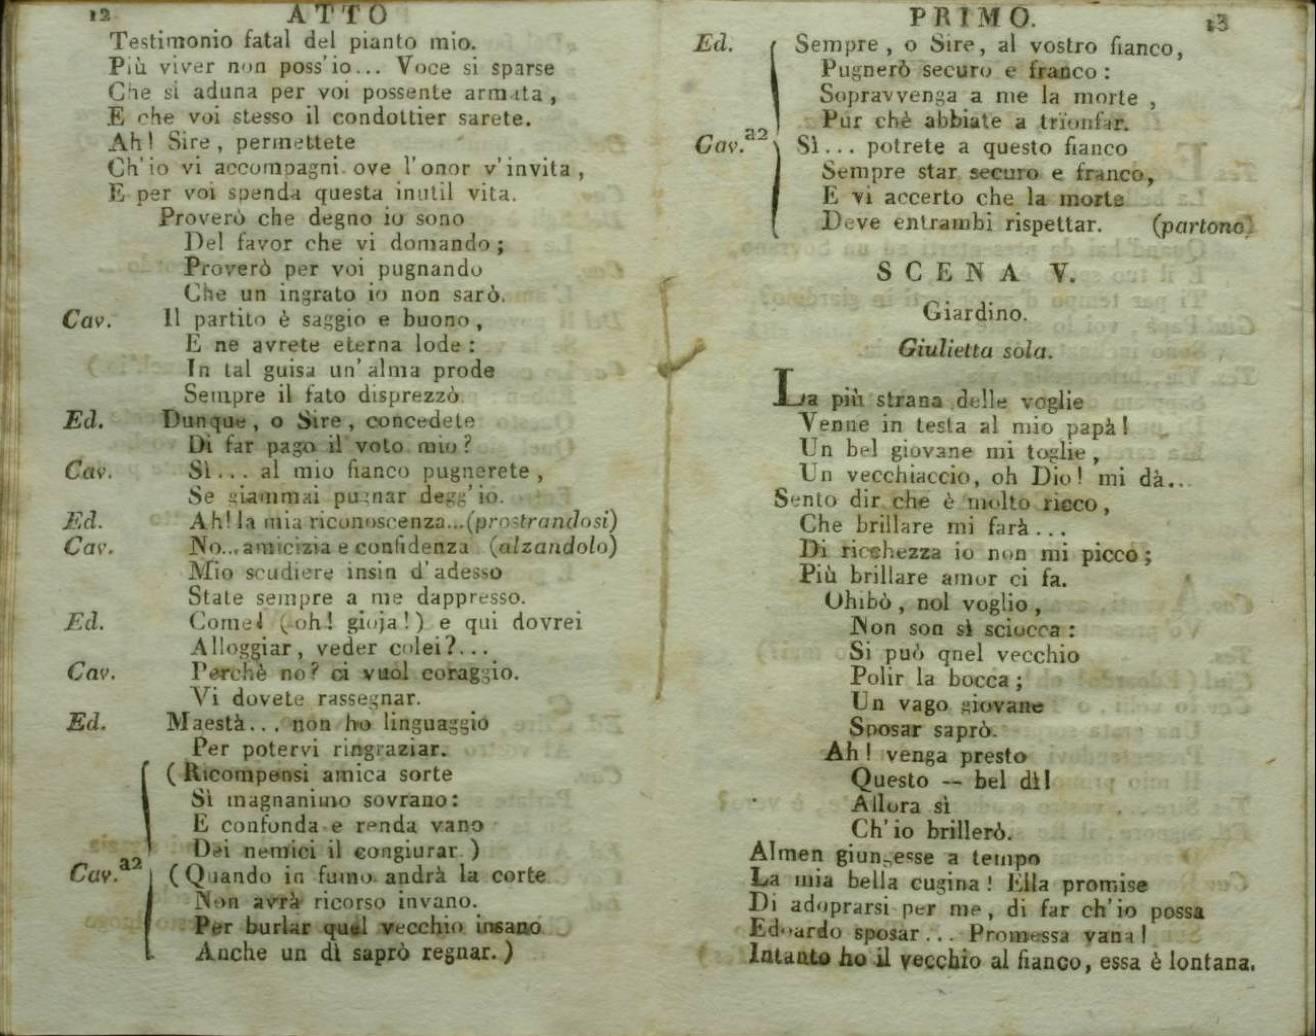 12 ATTO
Testimonio fatal del pianto mio.
Più viver non poss'io... Voce si sparse
Che si aduna per voi possente armata,
E che voi stesso il condottier sarete.
Ah! Sire, permettete
Ch'io vi accompagni ove l'onor v'invita,
E per voi spenda questa inutil vita.
Proverò che degno io sono
Del favor che vi domando;
Proverò per voi pugnando
Che un ingrato io non sarò.
Cav. Il partito è saggio e buono,
E ne avrete eterna lode:
In tal guisa un'alma prode
Sempre il fato disprezzò.
Ed. Dunque, o Sire, concedete
Di far pago il voto mio?
Cav. Sì... al mio fianco pugnerete,
Se giammai pugnar degg'io.
Ed. Ah! la mia riconoscenza...(prostrandosi)
Cav. No... amicizia e confidenza (alzandolo)
Mio scudiere insin d'adesso
State sempre a me dappresso.
Ed. Come! (oh! gioja!) e qui dovrei
Alloggiar, veder colei?...
Cav. Perchè no? ci vuol coraggio.
Vi dovete rassegnar.
Ed. Maestà... non ho linguaggio
Per potervi ringraziar.
(Ricompensi amica sorte
Sì magnanimo sovrano:
E confonda e renda vano
Dei nemici il congiurar.)
Cav. a2 (Quando in fumo andrà la corte
Non avrà ricorso invano.
Per burlar quel vecchio insano
Anche un dì saprò regnar.)
PRIMO. 13
Ed. Sempre, o Sire, al vostro fianco,
Pugnerò securo e franco:
Sopravvenga a me la morte,
Pur chè abbiate a trionfar.
Cav. a2 Sì... potrete a questo fianco
Sempre star securo e franco,
E vi accerto che la morte
Deve entrambi rispettar. (partono)
SCENA V.
Giardino.
Giulietta sola.
La più strana delle voglie
Venne in testa al mio papà!
Un bel giovane mi toglie,
Un vecchiaccio, oh Dio! mi dà...
Sento dir che è molto ricco,
Che brillare mi farà...
Di ricchezza io non mi picco;
Più brillare amor ci fa.
Ohibò, nol voglio,
Non son sì sciocca:
Si può qnel vecchio
Polir la bocca;
Un vago giovane
Sposar saprò.
Ah! venga presto
Questo — bel dì!
Allora sì
Ch'io brillerò.
Almen giungesse a tempo
La mia bella cugina! Ella promise
Di adoprarsi per me, di far ch'io possa
Edoardo sposar... Promessa vana!
Intanto ho il vecchio al fianco, essa è lontana.